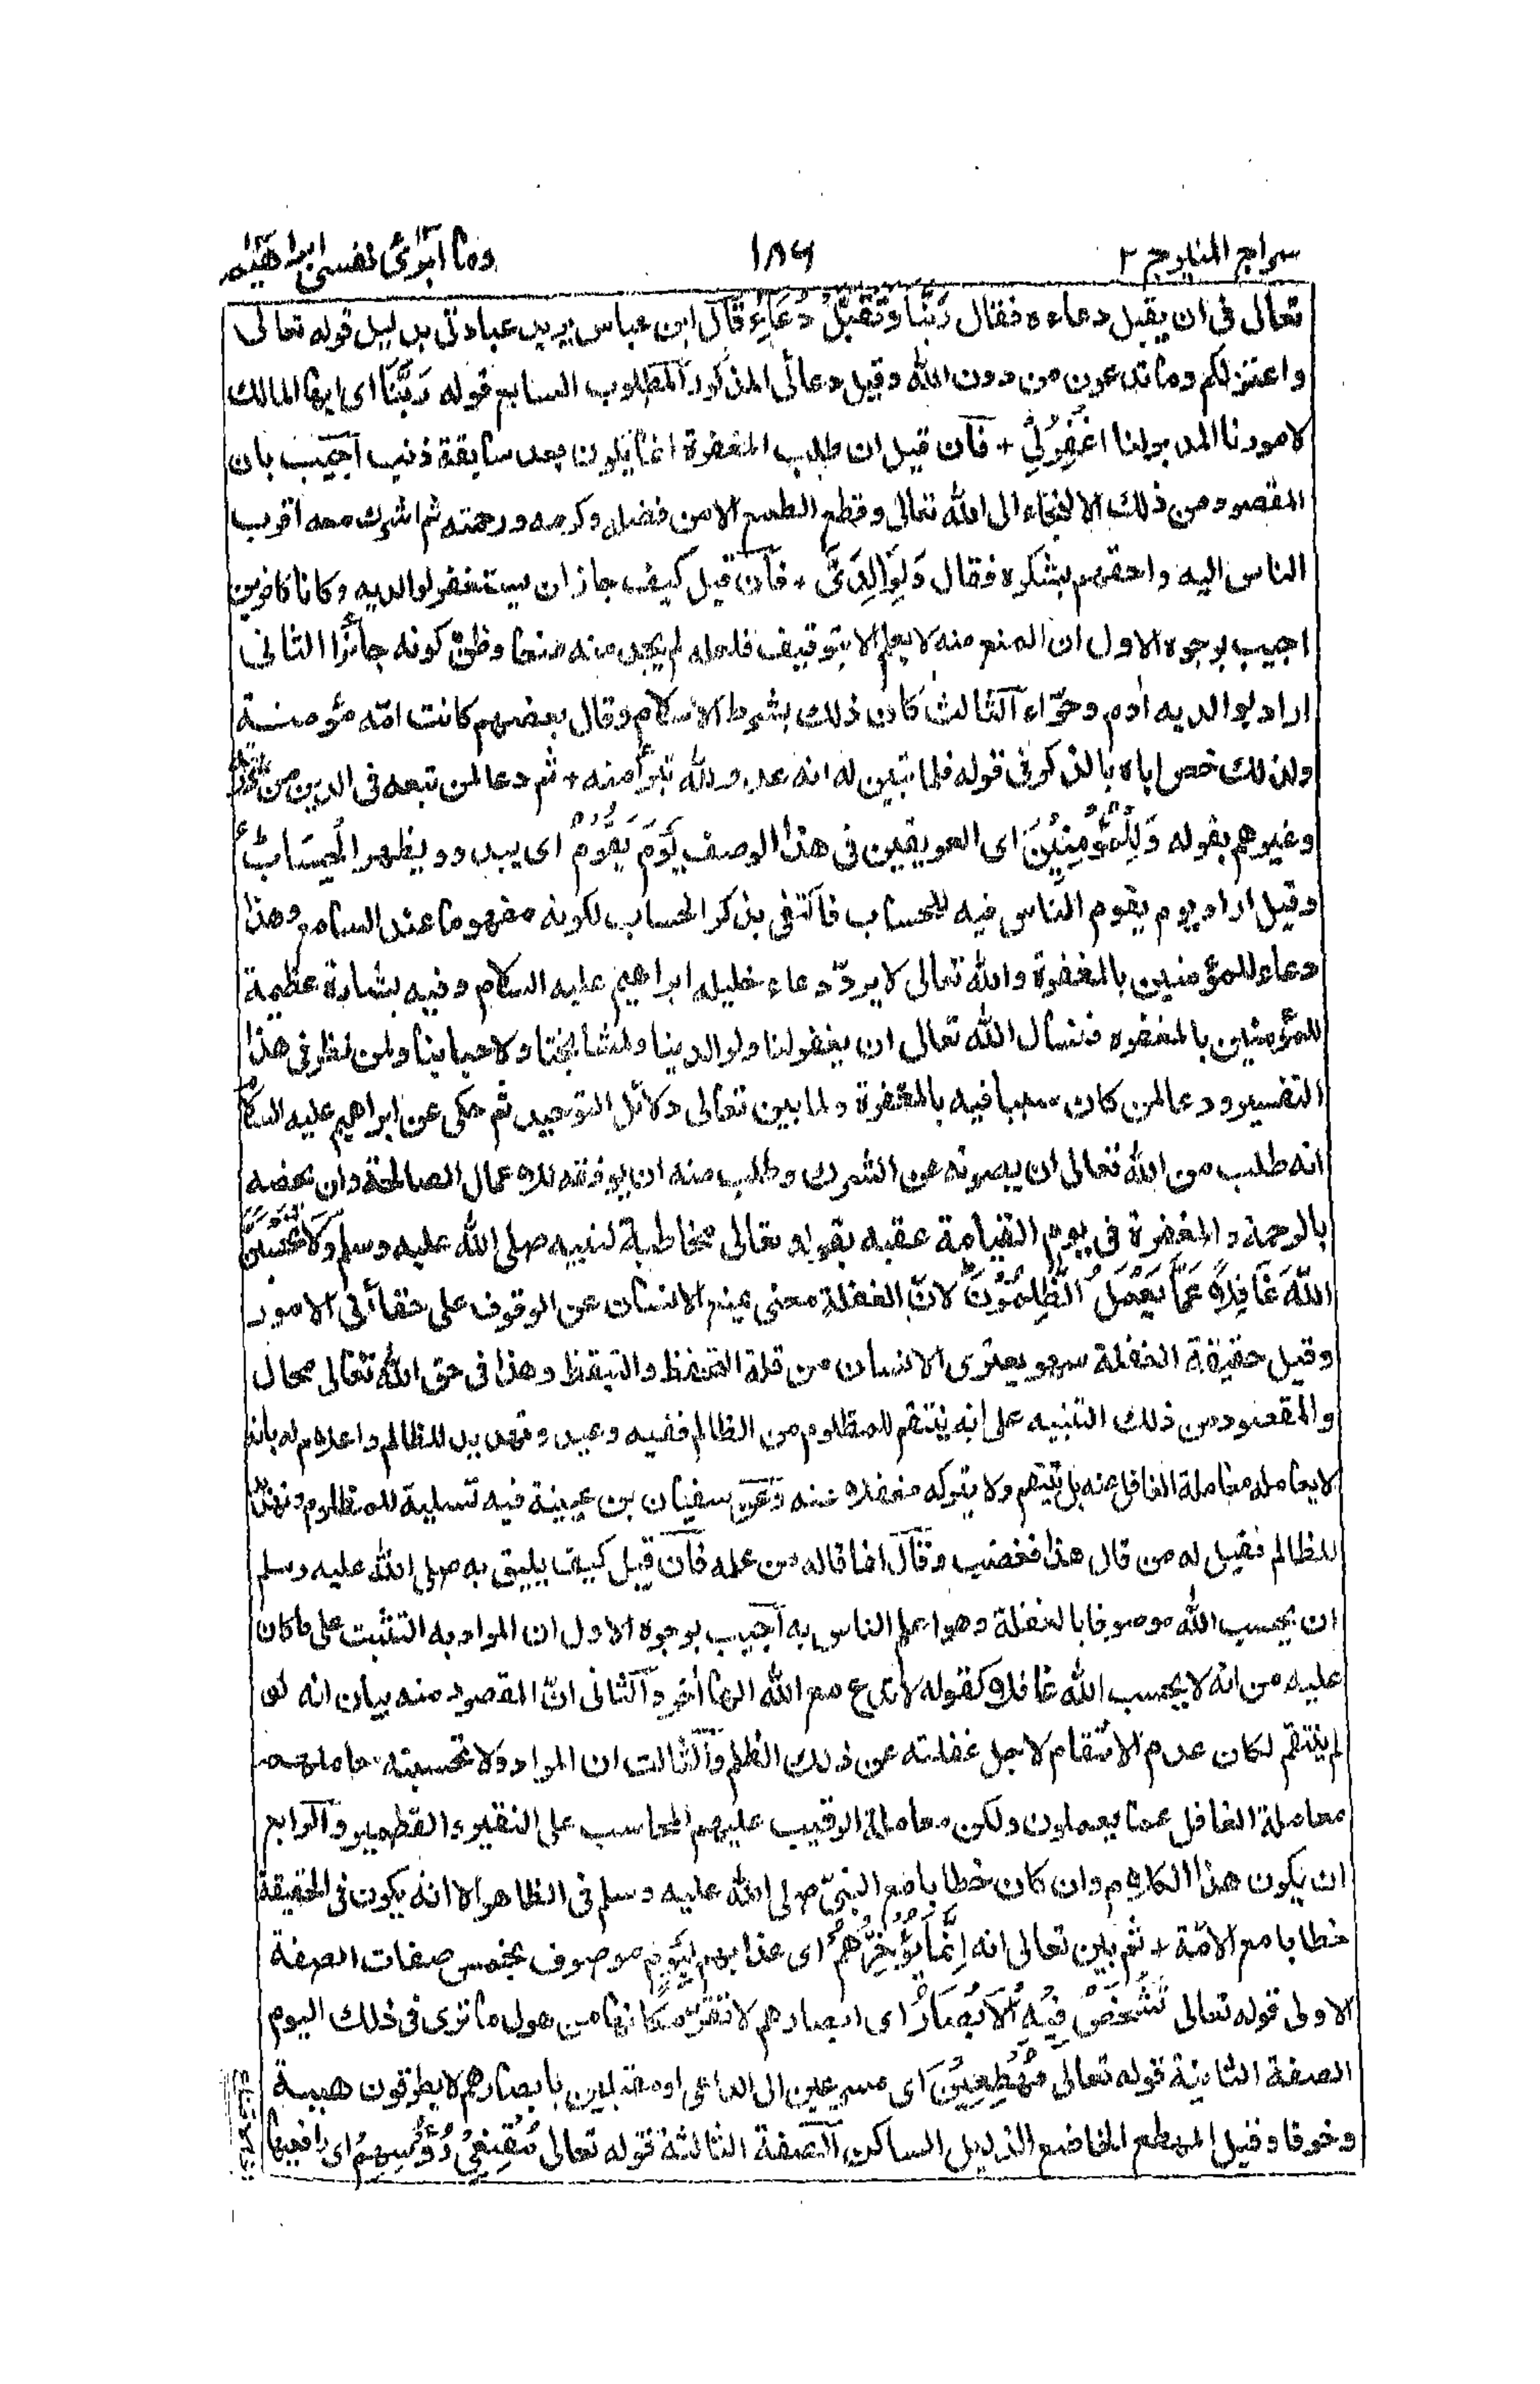 سراج المنير ج ٢ ١٨٦ وما ابرئ نفسی ابراهیم
تعالى فى ان يقبل دعاءه فقال رَبَّنَا وَتَقَبَّلْ دُعَاءِ قال ابن عباس يريد عبادتى بدليل قوله تعالى
واعتزلكم وما تدعون من دون الله وقيل دعائى المذكور المطلوب السابع قوله رَبَّنَا اى ايها المالك
لامورنا المدبر لنا اغْفِرْ لِيْ + فان قيل ان طلب المغفرة انما يكون بعد سابقة ذنب اجيب بان
المقصود من ذلك الالتجاء الى الله تعالى وقطع الطمع الا من فضله وكرمه ورحمته ثم اشرك معه اقرب
الناس اليه واحقهم بشكره فقال وَلِوَالِدَيَّ + فان قيل كيف جاز ان يستغفر لوالديه وكانا كافرين
اجيب بوجوه الاول ان المنع منه لا يعلم الا بتوقيف فلعله لم يجد منه منعا وظنّ كونه جائزا الثانى
اراد بوالديه اٰدم وحوّاء الثالث كان ذلك بشرط الاسلام وقال بعضهم كانت امّه مؤمنة
ولذلك خص اباه بالذكر فى قوله فلما تبين له انه عدو لله تبرأ منه + ثم دعا لمن تبعه فى الدين من
وغيرهم بقوله وَلِلْمُؤْمِنِيْنَ اى العريقين فى هذا الوصف يَوْمَ يَقُوْمُ اى يبدو ويظهر الْحِسَابُ
وقيل اراد يوم يقوم الناس فيه للحساب فاكتفى بذكر الحساب لكونه مفهوما عند السامع وهذا
دعاء للمؤمنين بالمغفرة والله تعالى لا يردّ دعاء خليله ابراهيم عليه السلام وفيه بشارة عظيمة
للمؤمنين بالمغفره فنسال الله تعالى ان يغفر لنا ولوالدينا ولمشايخنا ولاحبابنا ولمن نظر فى هذا
التفسير ودعا لمن كان سببا فيه بالمغفرة ولما بين تعالى دلائل التوحيد ثم حكى عن ابراهيم عليه السلام
انه طلب من الله تعالى ان يصونه عن الشرك وطلب منه ان يوفقه للاعمال الصالحة وان يخصه
بالرحمة والمغفرة فى يوم القيامة عقبه بقوله تعالى مخاطبة لنبيه صلى الله عليه وسلم وَلَا تَحْسَبَنَّ
اللّٰهَ غَافِلًا عَمَّا يَعْمَلُ الظّٰلِمُوْنَ لانّ الغفلة معنى يمنع الانسان عن الوقوف على حقائق الامور
وقيل حقيقة الغفلة سهو يعترى الانسان من قلة التحفظ والتيقظ وهذا فى حق الله تعالى محال
والمقصود من ذلك التنبيه على انه ينتقم للمظلوم من الظالم ففيه وعيد وتهديد للظالم واعلام له بانه
لا يعامله معاملة الغافل عنه بل ينتقم ولا يتركه مغفلا عنه وعن سفيان بن عيينة فيه تسلية للمظلوم وتهديد
للظالم فقيل له من قال هذا فغضب وقال انما قاله من علمه فان قيل كيف يليق به صلى الله عليه وسلم
ان يحسب الله موصوفا بالغفلة وهو اعلم الناس به اجيب بوجوه الاول ان المراد به التثبت على ما كان
عليه من انه لا يحسب الله غافلا كقوله لا تدع مع الله الها اٰخر والثانى انّ المقصود منه بيان انه لو
لم ينتقم لكان عدم الانتقام لاجل غفلته عن ذلك الظلم والثالث ان المراد ولا تحسبنه يعاملهم
معاملة الغافل عما يعملون ولكن معاملة الرقيب عليهم المحاسب على النقير والقطمير والرابع
ان يكون هذا الكلام وان كان خطابا مع النبىّ صلى الله عليه وسلم فى الظاهر الا انه يكون فى الحقيقة
خطابا مع الامّة + ثم بين تعالى انه اِنَّمَا يُؤَخِّرُهُمْ اى عذابهم لِيَوْمٍ موصوف بخمس صفات الصفة
الاولى قوله تعالى تَشْخَصُ فِيْهِ الْاَبْصَارُ اى ابصارهم لا تقرّ مكانها من هول ما ترى فى ذلك اليوم
الصفة الثانية قوله تعالى مُهْطِعِيْنَ اى مسرعين الى الداعى او مقبلين بابصارهم لا يطرقون هيبة
وخوفا وقيل المهطع الخاضع الذليل الساكن الصفة الثالثة قوله تعالى مُقْنِعِيْ رُؤُسِهِمْ اى رافعيها